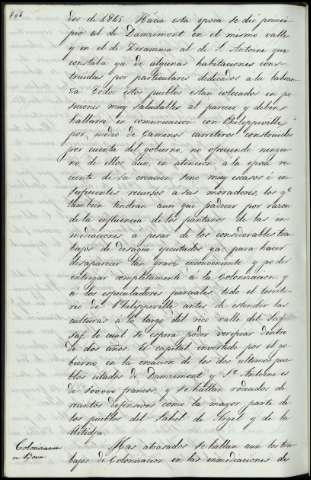 dos de 1845. Hácia esta época se dió princi-
pio al de Damrémont en el mismo valle
y en el de Zeramna al de St. Antoine que
constaba ya de algunas habitaciones cons-
truidas por particulares dedicados á la labran-
za. Todos estos pueblos estan colocados en po-
siciones muy saludables al parecer y deben
hallarse en comunicacion con Philippeville
por medio de caminos carreteros construidos
por cuenta del gobierno, no ofreciendo ningu-
no de ellos aun, en atencion á la época re-
ciente de su creacion sino muy escasos é in-
suficientes recursos á sus moradores, los q.e
tambien tendran aun que padecer por razon
de la influencia de los pantanos de las in-
mediaciones á pesar de los considerables tra-
bajos de desagüe ejecutados ya para hacer
desaparecer tan grave inconveniente y poder
entregar completamente á la Colonizacion y
á los especuladores parciales todo el territo-
rio de Philippeville antes de estender las
culturas á lo largo del rico valle del Saf-
saf, lo cual se espera poder verificar dentro
de dos años. El capital invertido por el go-
bierno en la creacion de los dos ultimos pue-
blos citados de Damrémont y St. Antoine es
de francos, y se hallan rodeados de
recintos defensivos como la mayor parte de
los pueblos del Sahel de Argel y de la
Mitidja.
Colonizacion
en Bona
Mas atrasados se hallan aun los tra-
bajos de Colonizacion en las inmediaciones de